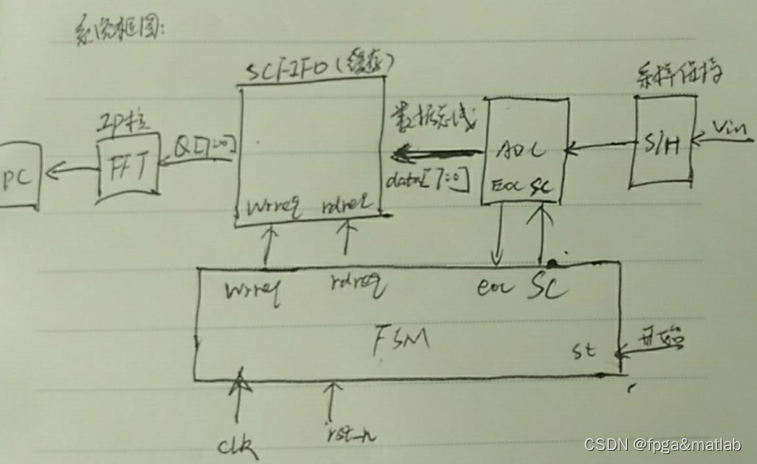 系统框图:
SCFIFO(缓存)
采样保持
IP核
数据总线
Vin
S/H
ADC
Q[7:0]
FFT
PC
data[7:0]
EOC SC
wrreq rdreq
wrreq rdreq eoc SC
FSM
st
开始
clk
rst_n
CSDN @fpga&matlab